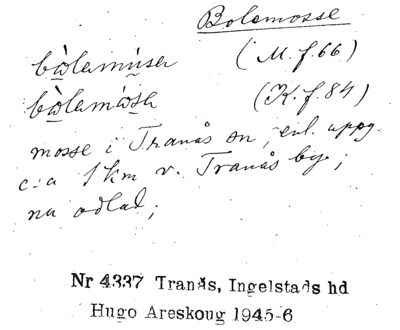 Bolemosse
bòlemúser (M. f. 66)
bòlemósa (K. f. 84)
mosse i Tranås sn, enl. uppg.
c:a 1 km v. Tranås by;
nu odlad;
Nr 4337 Tranås, Ingelstads hd
Hugo Areskoug 1945-6